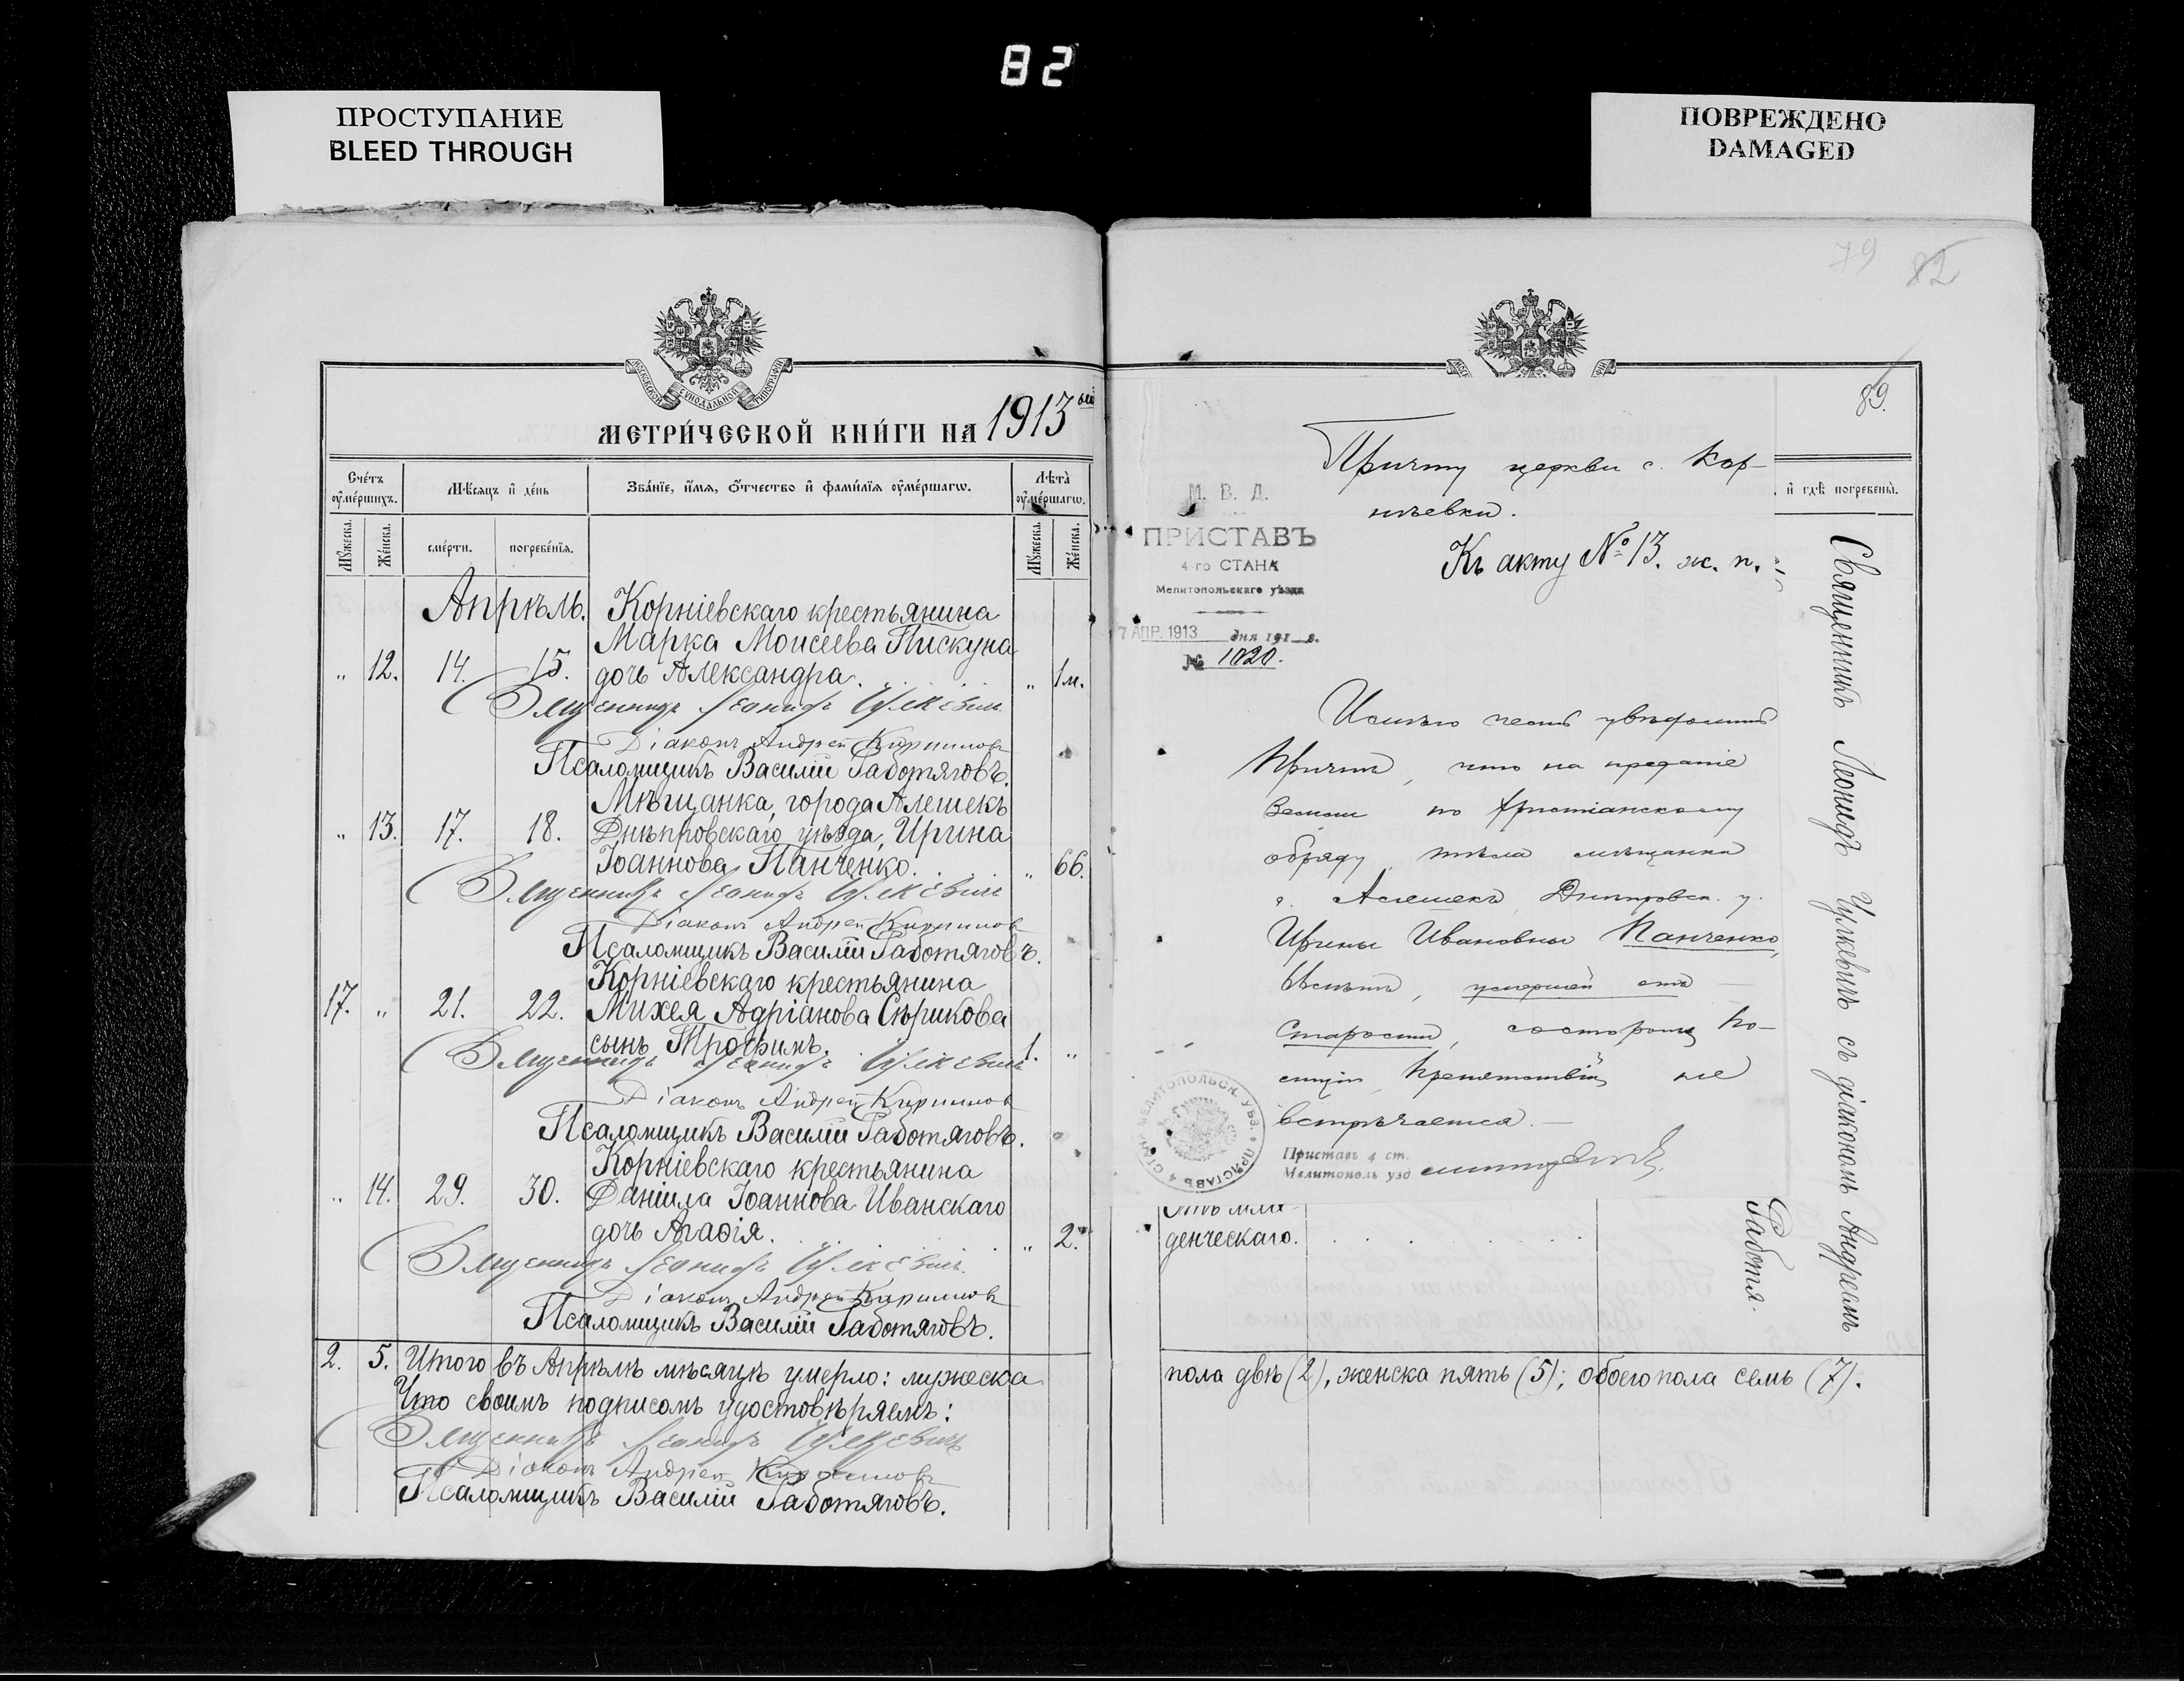 82
ПРОСТУПАНИЕ
BLEED THROUGH
ПОВРЕЖДЕНО
DAMAGED
МЕТРИ́ЧЕСКОЙ КНИ́ГИ НА 1913 ый
Счетъ ѹмершихъ.
Мѣсяцъ и день
Званїе, имя, отчество и фамилїя ѹмершагѡ.
Лѣта ѹмершагѡ.
Мужеска.
Женска.
смерти.
погребенїя.
Мужеска.
Женска.
Апрѣль. Корніевскаго крестьянина
Марка Моисеева Пискуна
" 12. 14. 15. дочь Александра. " 1 м.
Священникъ Леонидъ Цулкевичъ
Діаконъ Андрей Кириллов
Псаломщикъ Василій Работяговъ.
Мѣщанка, города Алешекъ
" 13. 17. 18. Днѣпровскаго уѣзда, Ирина
Іоаннова Панченко. " 66.
Священникъ Леонидъ Цулкевичъ
Діаконъ Андрей Кириллов
Псаломщикъ Василій Работяговъ.
Корніевскаго крестьянина
17. " 21. 22. Михея Адріанова Сѣрикова
сынъ Трофимъ. 1. "
Священникъ Леонидъ Цулкевичъ
Діаконъ Андрей Кириллов
Псаломщикъ Василій Работяговъ.
Корніевскаго крестьянина
" 14. 29. 30. Даніила Іоаннова Иванскаго
дочь Агаѳія. " 2.
Священникъ Леонидъ Цулкевичъ
Діаконъ Андрей Кириллов
Псаломщикъ Василій Работяговъ.
2. 5. Итого въ Апрѣлѣ мѣсяцѣ умерло: мужеска
Что своимъ подписомъ удостовѣряемъ:
Священникъ Леонидъ Цулкевичъ
Діаконъ Андрей Кирилловъ
Псаломщикъ Василій Работяговъ.
79 82
89.
и гдѣ погребены.
Причту церкви с. Кор-
нѣевки.
Къ акту № 13. ж. п.
М. В. Д.
ПРИСТАВЪ
4-го СТАНА
Мелитопольскаго уѣзда
7 АПР. 1913 дня 191 г.
№ 1020.
Имѣю честь увѣдомить
Причтъ, что на преданіе
земли по христіанскому
обряду тѣла мѣщанки
г. Алешекъ Днѣпровск. у.
Ирины Ивановны Панченко,
умершей отъ
старости, со стороны По-
лиціи препятствій не
встрѣчается.
Приставъ 4 ст.
Мелитополь уѣзд
ПРИСТАВЪ 4 СТАН. МЕЛИТОПОЛЬСК. УѢЗ.
Священникъ Леонидъ Цулкевичъ съ діакономъ Андреемъ
Работя-
Отъ мла-
денческаго.
пола двѣ (2), женска пять (5); обоего пола семь (7).